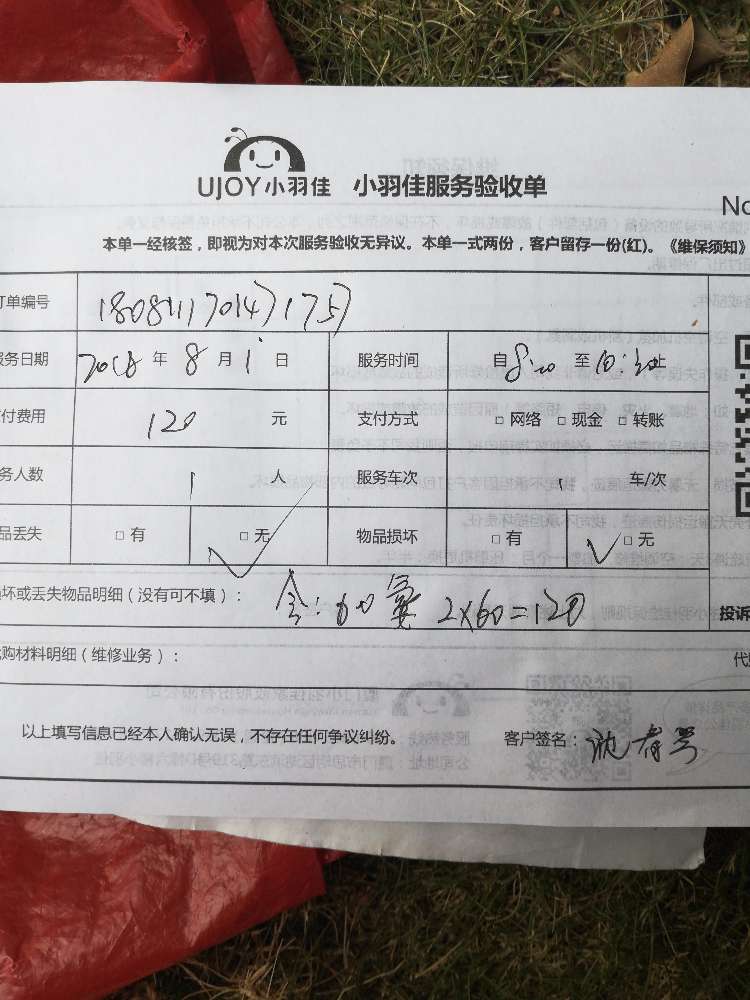 UJOY小羽佳 小羽佳服务验收单
No
本单一经核签，即视为对本次服务验收无异议。本单一式两份，客户留存一份(红)。《维保须知》
订单编号
服务日期 2018 年 8 月 1 日 服务时间 自 8:20 至 10:20 止
付费用 120 元 支付方式 □ 网络 □ 现金 □ 转账
务人数 1 人 服务车次 1 车/次
品丢失 □ 有 □ 无 物品损坏 □ 有 □ 无
损坏或丢失物品明细（没有可不填）： 2×60=120
投诉
购材料明细（维修业务）：
代
以上填写信息已经本人确认无误，不存在任何争议纠纷。 客户签名：